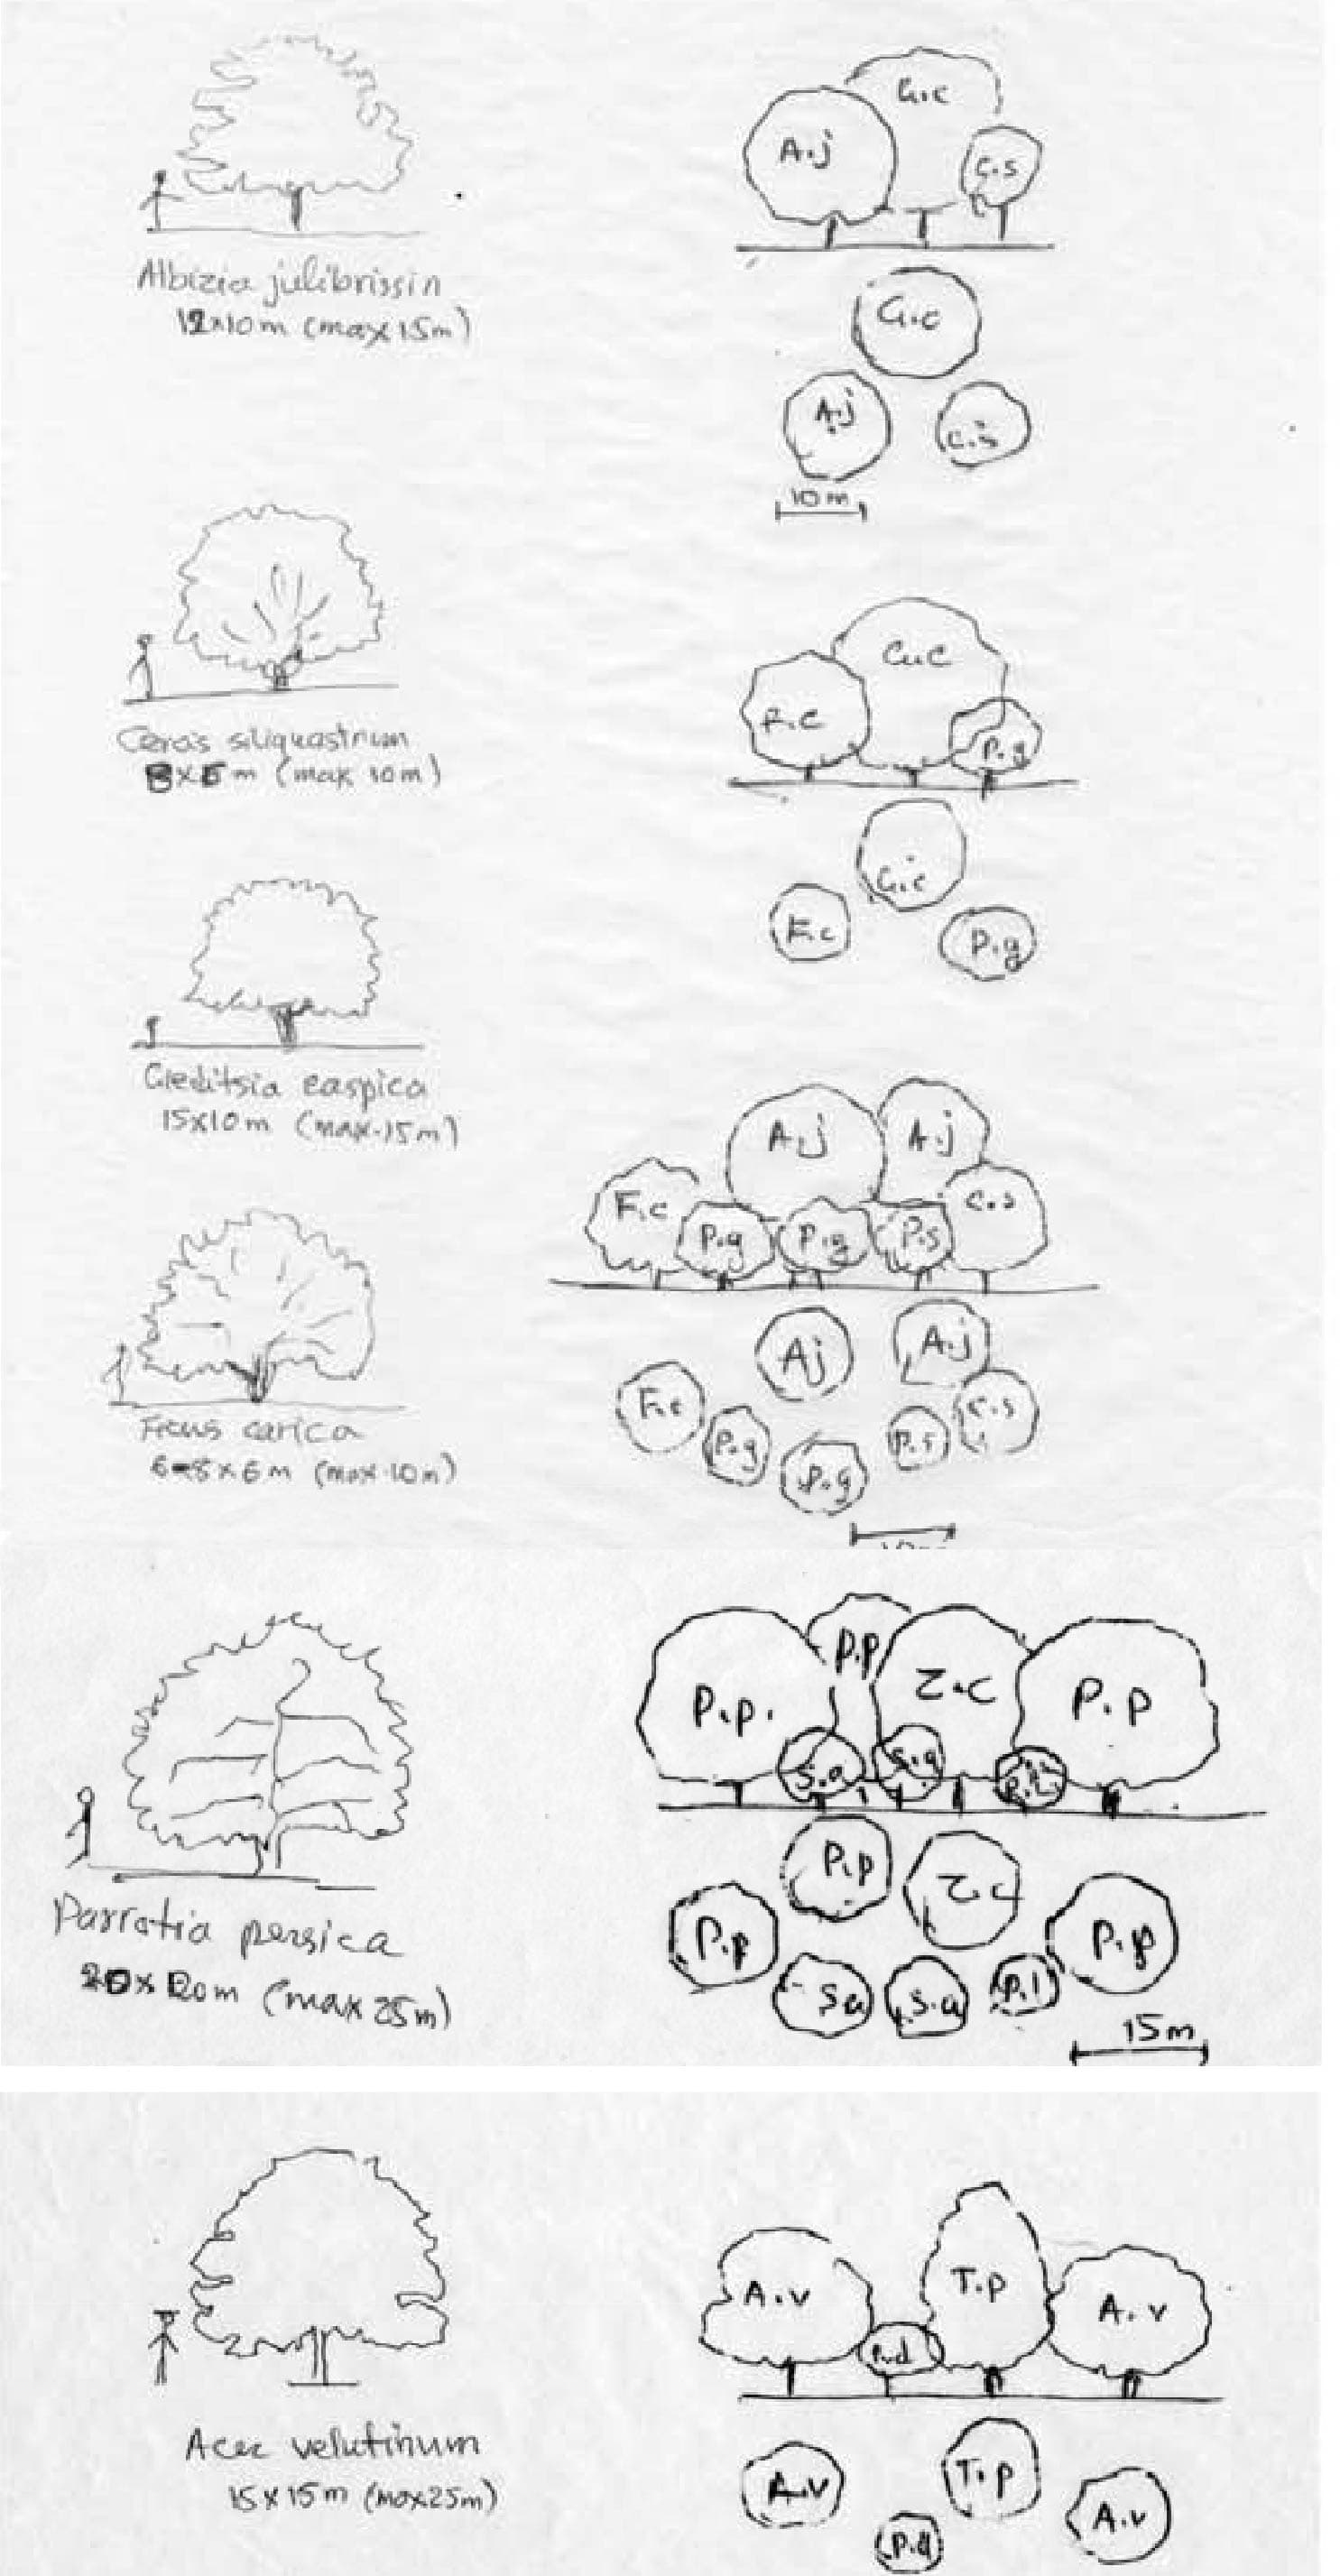 G.c
A.j
c.s
Albizia julibrissin
12x10m (max 15m)
G.c
A.j
c.s
10m
G.c
F.c
P.g
Cercis siliquastrum
(max 10m)
G.c
F.c
P.g
Gleditsia caspica
15x10m (max.15m)
A.j
A.j
F.c
P.g
P.g
P.s
c.s
Aj
A.j
F.c
P.g
P.g
P.s
c.s
Ficus carica
6-8x6m (max.10m)
P.p.
P.p
Z.c
P.p
S.a
S.a
P.p
Z.c
P.p
P.p
Sa
S.a
P.l
Parrotia persica
(max 25m)
15m
A.v
T.p
A.v
P.d
Acer velutinum
15x15m (max25m)
A.v
T.p
A.v
P.d